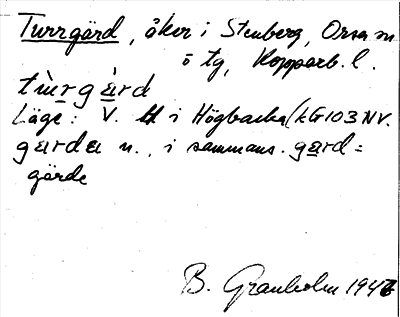 Turrgärd, åker i Stenberg, Orsa sn
o tg, Kopparb. l.
tùrgà̱rd
Läge: V. H i Högbacka (kG103NV.
garda n., i sammans. gard=
gärde
B. Granholm 1947